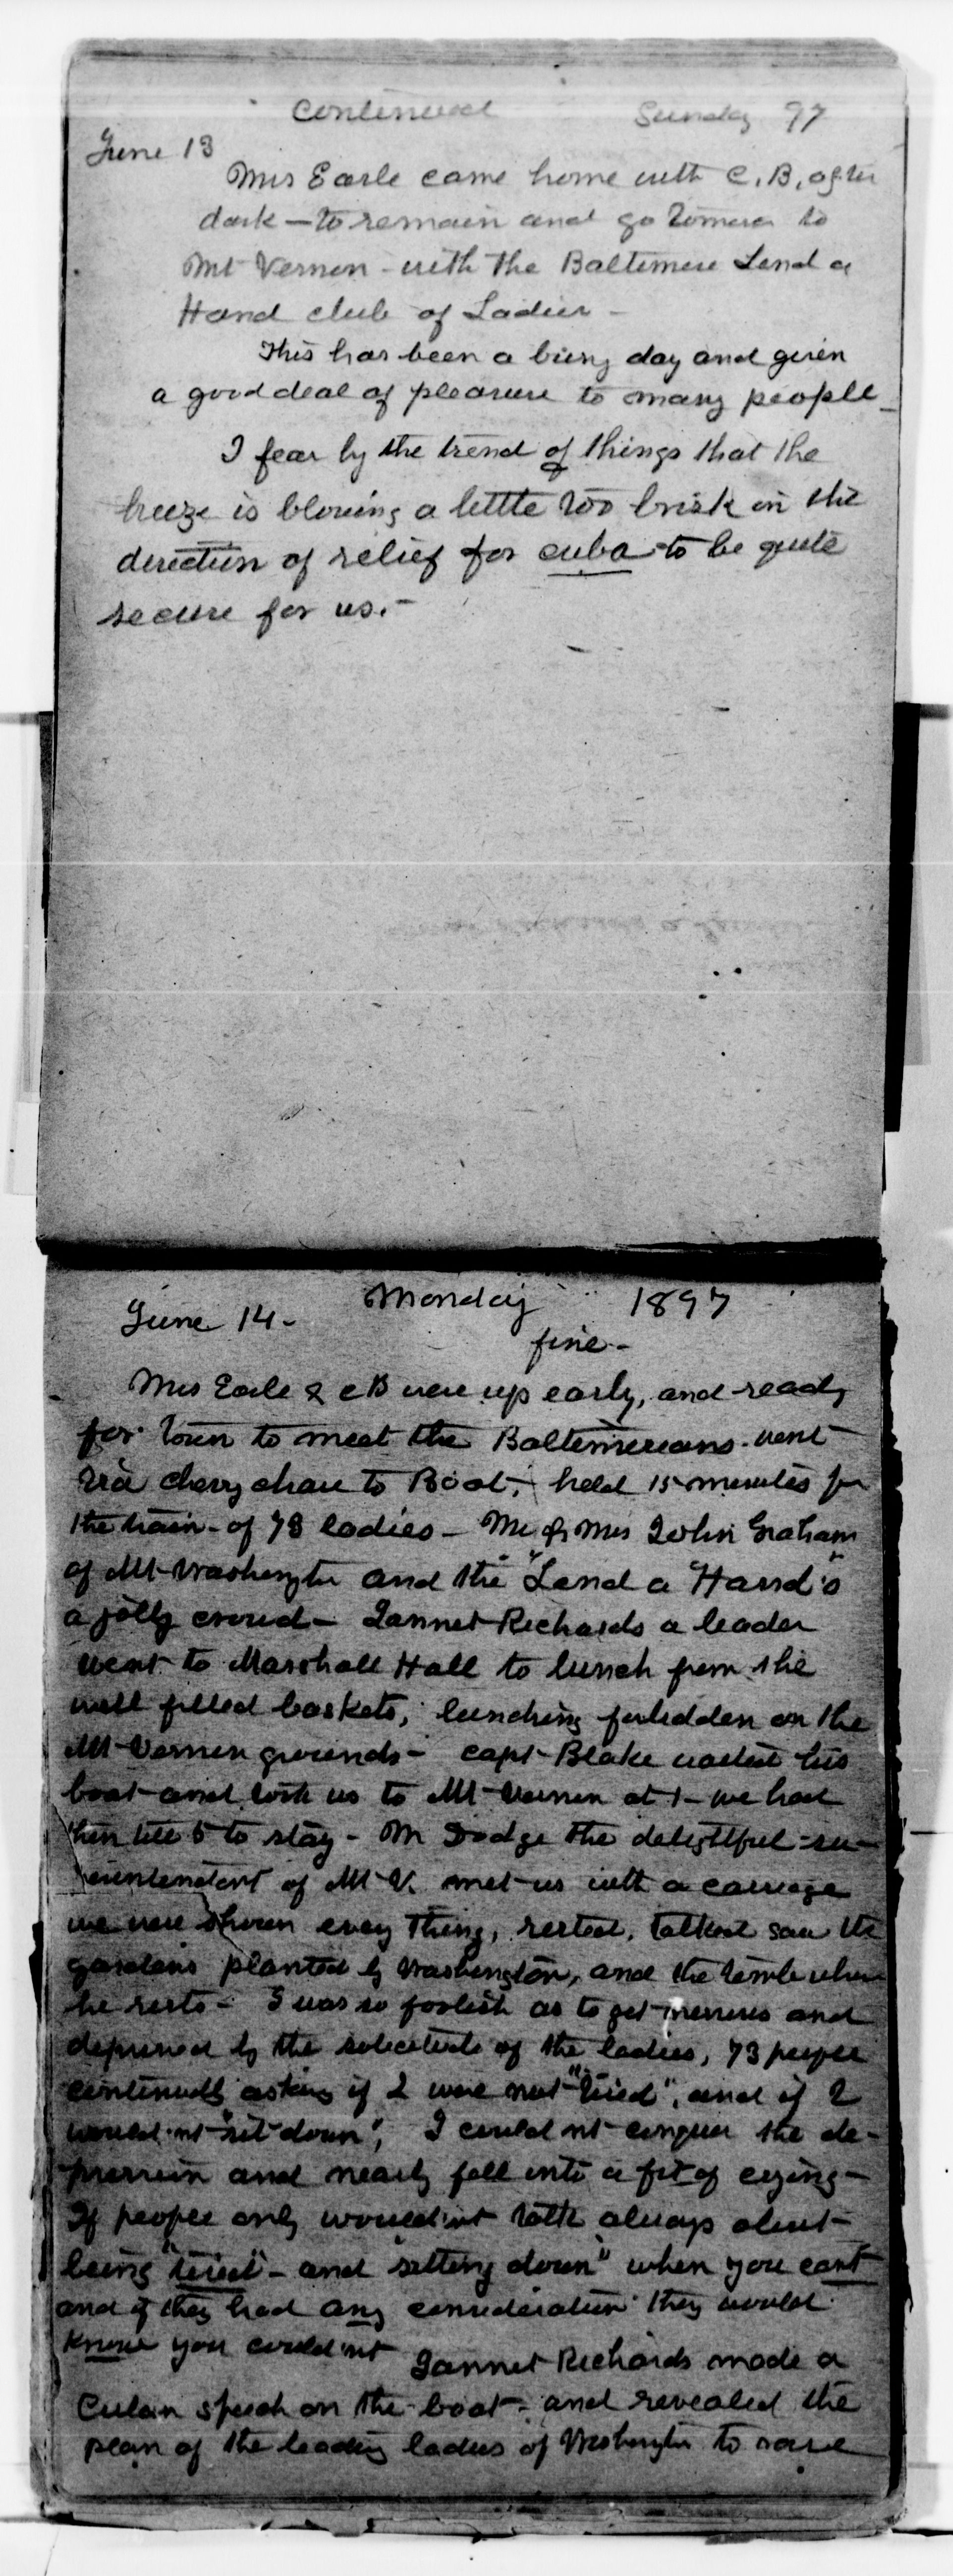 Continued Sunday 97
June 13
Mrs Earle came home with C. B. after
dark — to remain and go tomorrow to
Mt Vernon - with the Baltimore Lend a
Hand club of Ladies -
This has been a busy day and given
a good deal of pleasure to many people -
I fear by the trend of things that the
breeze is blowing a little too brisk in the
direction of relief for Cuba to be quite
secure for us. -
June 14 - Monday 1897
fine -
Mrs Earle & CB were up early, and ready
for town to meet the Baltimoreans - went
via chevy chase to Boat, held 15 minutes for
the train - of 73 ladies - Mr & Mrs John Graham
of Mt Washington and the "Lend a Hand's"
a jolly crowd - Jannet Richards a leader
went to Marshall Hall to lunch from the
well filled baskets, lunching forbidden on the
Mt Vernon grounds - capt Blake waited his
boat and took us to Mt Vernon at 1 - we had
then till 5 to stay - Mr Dodge the delightful su-
erintendent of Mt V. met us with a carriage
we were shown every thing, rested, talked saw the
gardens planted by Washington, and the tomb where
he rests - I was so foolish as to get nervous and
depressed by the solicitude of the ladies, 73 people
continually asking if I were not "tired", and if I
would nt "sit down", I could nt conquer the de-
pression and nearly fell into a fit of crying -
If people only would nt talk always about
being "tired" - and "sitting down" when you cant
and if they had any consideration they would
know you could nt Jannet Richards made a
Cuban speech on the boat - and revealed the
plan of the leading ladies of Washington to raise